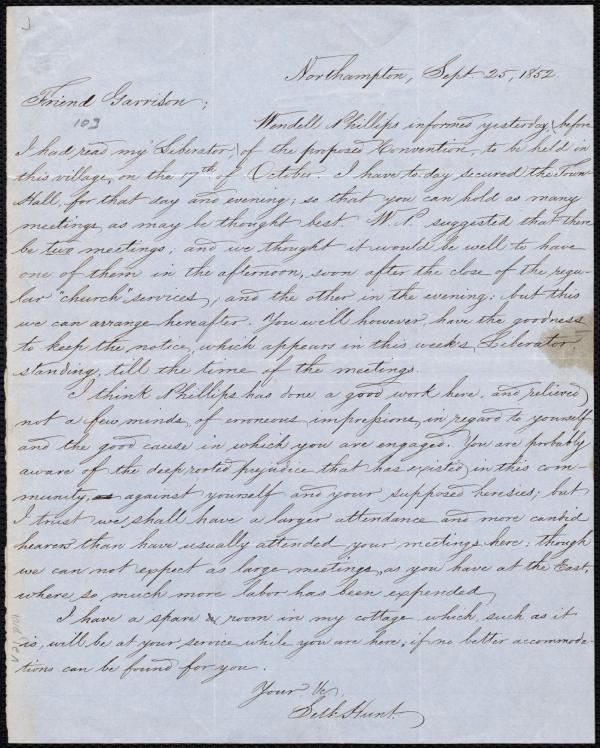 Northampton, Sept 25, 1852.
Friend Garrison;
103
Wendell Phillips informed yesterday, (before
I had read my Liberator,) of the proposed Convention, to be held in
this village, on the 17th of October. I have to day secured the Town
Hall, for that day and evening; so that you can hold as many
meetings as may be thought best. W. P. suggested that there
be two meetings, and we thought it would be well to have
one of them in the afternoon, soon after the close of the regu-
lar "church" services, and the other in the evening; but this
we can arrange hereafter. You will however, have the goodness
to keep the notice, which appears in this week's Liberator,
standing, till the time of the meetings.
I think Phillips has done a good work here, and relieved
not a few minds, of erroneous impressions, in regard to yourself
and the good cause in which you are engaged. You are probably
aware of the deep rooted prejudice that has existed in this com-
munity, against yourself and your supposed heresies; but
I trust we shall have a larger attendance and more candid
hearers than have usually attended your meetings here; though
we can not expect as large meetings, as you have at the East,
where so much more labor has been expended.
I have a spare room in my cottage which, such as it
is, will be at your service while you are here, if no better accommoda-
tions can be found for you.
Your &c,
Seth Hunt.